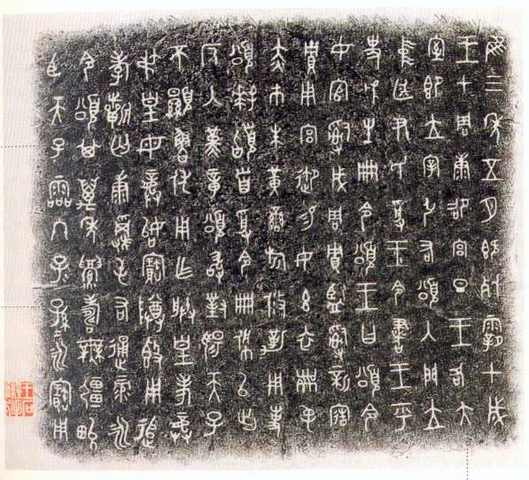 隹三年五月既死霸甲戌
王才周康卲宮旦王各大
室即立宰引右頌入門立
中廷尹氏受王令書王乎
史虢生冊令頌王曰頌令
女官𤔲成周貯監𤔲新造
貯用宮御易女玄衣黹屯
赤巿朱黃䜌旂攸勒用事
頌拜𩒨首受令冊佩以出
反入堇章頌敢對揚天子
不顯魯休用乍朕皇考龏
弔皇母龏姒寶尊簋用追
孝𣄨匃康𩁹屯右通彔永
令頌其萬年眉壽無彊畯
臣天子霝冬子孫永寶用